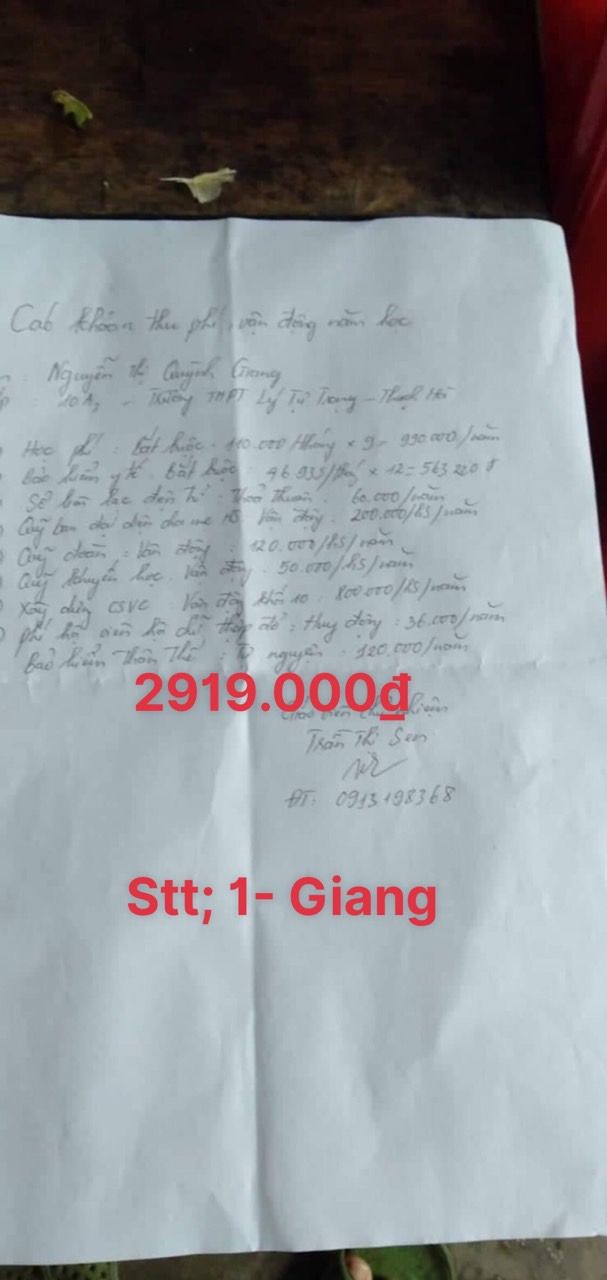 Các khoản thu phí, vận động năm học
: Nguyễn Thị Quỳnh Giang
: 10A, - Trường THPT Lý Tự Trọng - Thạch Hà
Học phí : Bắt buộc . 110.000 /tháng x 9 = 990.000/năm
Bảo hiểm y tế . Bắt buộc : 46.935/thg x 12 = 563 220 đ
Sổ liên lạc điện tử : Thoả thuận . 60.000/năm
Quỹ ban đại diện cha mẹ HS . Vận động . 200.000/hs/năm
Quỹ đoàn : Vận động : 120.000/hs/năm
Quỹ khuyến học . Vận động . 50.000/hs/năm
Xây dựng CSVC : Vận động khối 10 : 800.000/hs/năm
Phí hội viên hội chữ thập đỏ : Huy động : 36.000/năm
Bảo hiểm thân thể : Tự nguyện : 120.000/năm
2919.000đ
Giáo viên chủ nhiệm
Trần Thị Sen
ĐT: 0913198368
Stt; 1- Giang